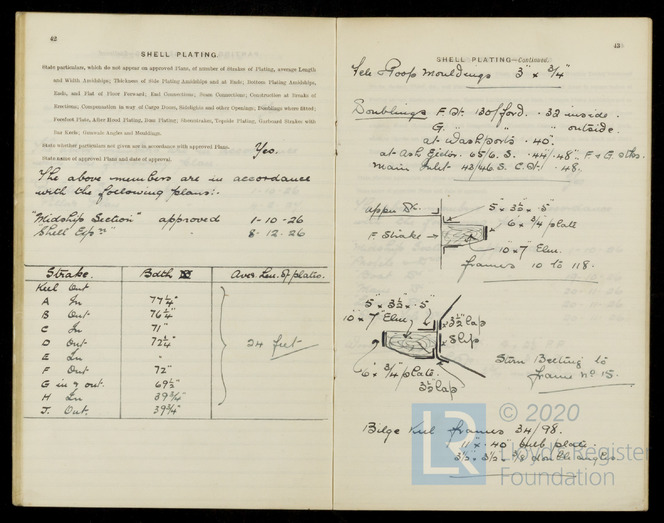 42
SHELL PLATING.
State particulars, which do not appear on approved Plans, of number of Strakes of Plating, average Length
and Width Amidships; Thickness of Side Plating Amidships and at Ends; Bottom Plating Amidships,
Ends, and Flat of Floor Forward; End Connections; Seam Connections; Construction at Breaks of
Erections; Compensation in way of Cargo Doors, Sidelights and other Openings; Doublings where fitted;
Forefoot Plate, After Hood Plating, Boss Plating; Sheerstrakes, Topside Plating, Garboard Strakes with
Bar Keels; Gunwale Angles and Mouldings.
State whether particulars not given are in accordance with approved Plans. Yes.
State name of approved Plans and date of approval.
The above members are in accordance
with the following plans:-
"Midship Section" approved 1-10-26
"Shell Exp" " 8-12-26
Strake. Bdth Aver. Len. of plates.
Keel Out
A In 77¼"
B Out 76¼"
C In 71"
D Out 72½"
E In "
F Out 72"
G in & out. 69½"
H In 39¾"
J. Out. 39¾"
24 feet
43
SHELL PLATING—Continued.
Poop Mouldings 3" x ¾"
Doublings F. St. 130/ford. .32 inside.
G. " " outside.
at Wash ports .40".
at Ash Ejector. 65/6.S. .44/.48". F & G stks.
Main Inlet 43/46.S. C. St. .48.
upper Dk.
5" x 3½" x .5"
6" x ¾ plate
F. Strake
10" x 7" Elm.
frames 10 to 118.
5" x 3½" x .5"
10" x 7" Elm
3½" lap
6" x ¾" plate.
3½" lap
Stern Belting to
frame No 15.
Bilge Keel frames 34/98.
11" x .40" bulb plate
3½ x 3½ x ⅜ double angles
© 2020
LR
Lloyd's Register
Foundation